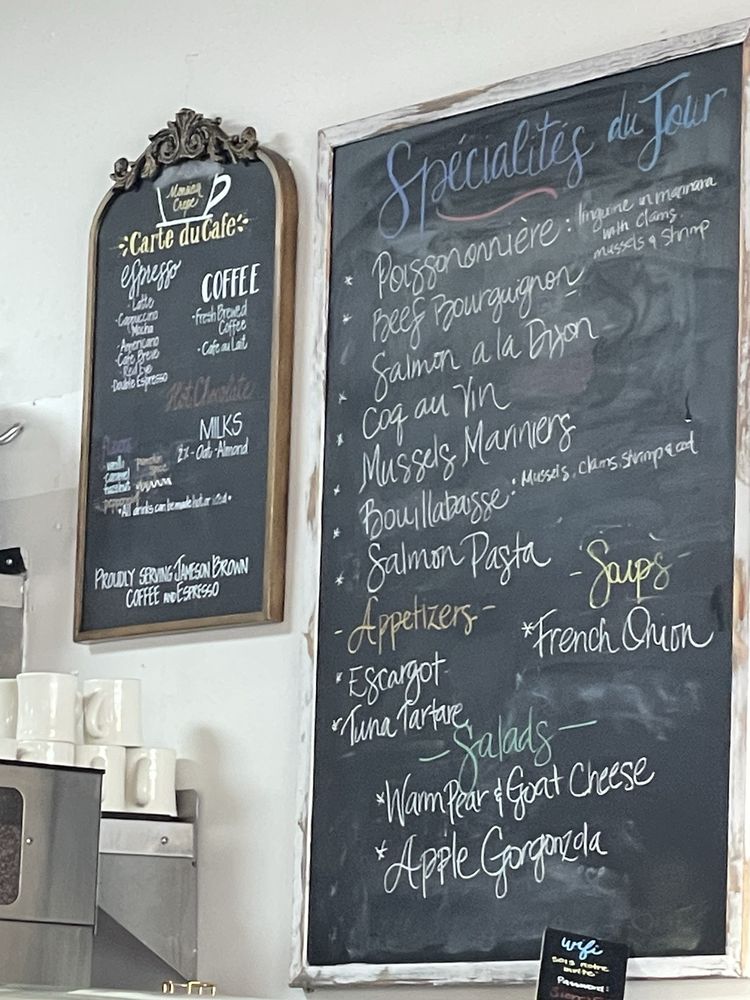 Monsieur
Crepe
Carte du Cafe
espresso
·Latte
·Cappuccino
Mocha
·Americano
·Café Breve
·Red Eye
·Double Espresso
COFFEE
·Fresh Brewed
Coffee
·Cafe au Lait
Hot Chocolate
MILKS
2% -Oat -Almond
Flavors
vanilla
caramel
hazelnut
peppermint
pumpkin
spice
*All drinks can be made hot or iced*
PROUDLY SERVING JAMESON BROWN
COFFEE AND ESPRESSO
Spécialités du Jour
* Poissononnière : linguine in marinara
with clams
mussels & shrimp
* Beef Bourguignon
Salmon a la Dijon
* Coq au Vin
* Mussels Mariniers
* Bouillabaisse: Mussels, clams, shrimp & cod
* Salmon Pasta
- Soups -
*French Onion
- Appetizers -
* Escargot
* Tuna Tartare
- Salads -
*Warm Pear & Goat Cheese
*Apple Gorgonzola
wifi
Password: